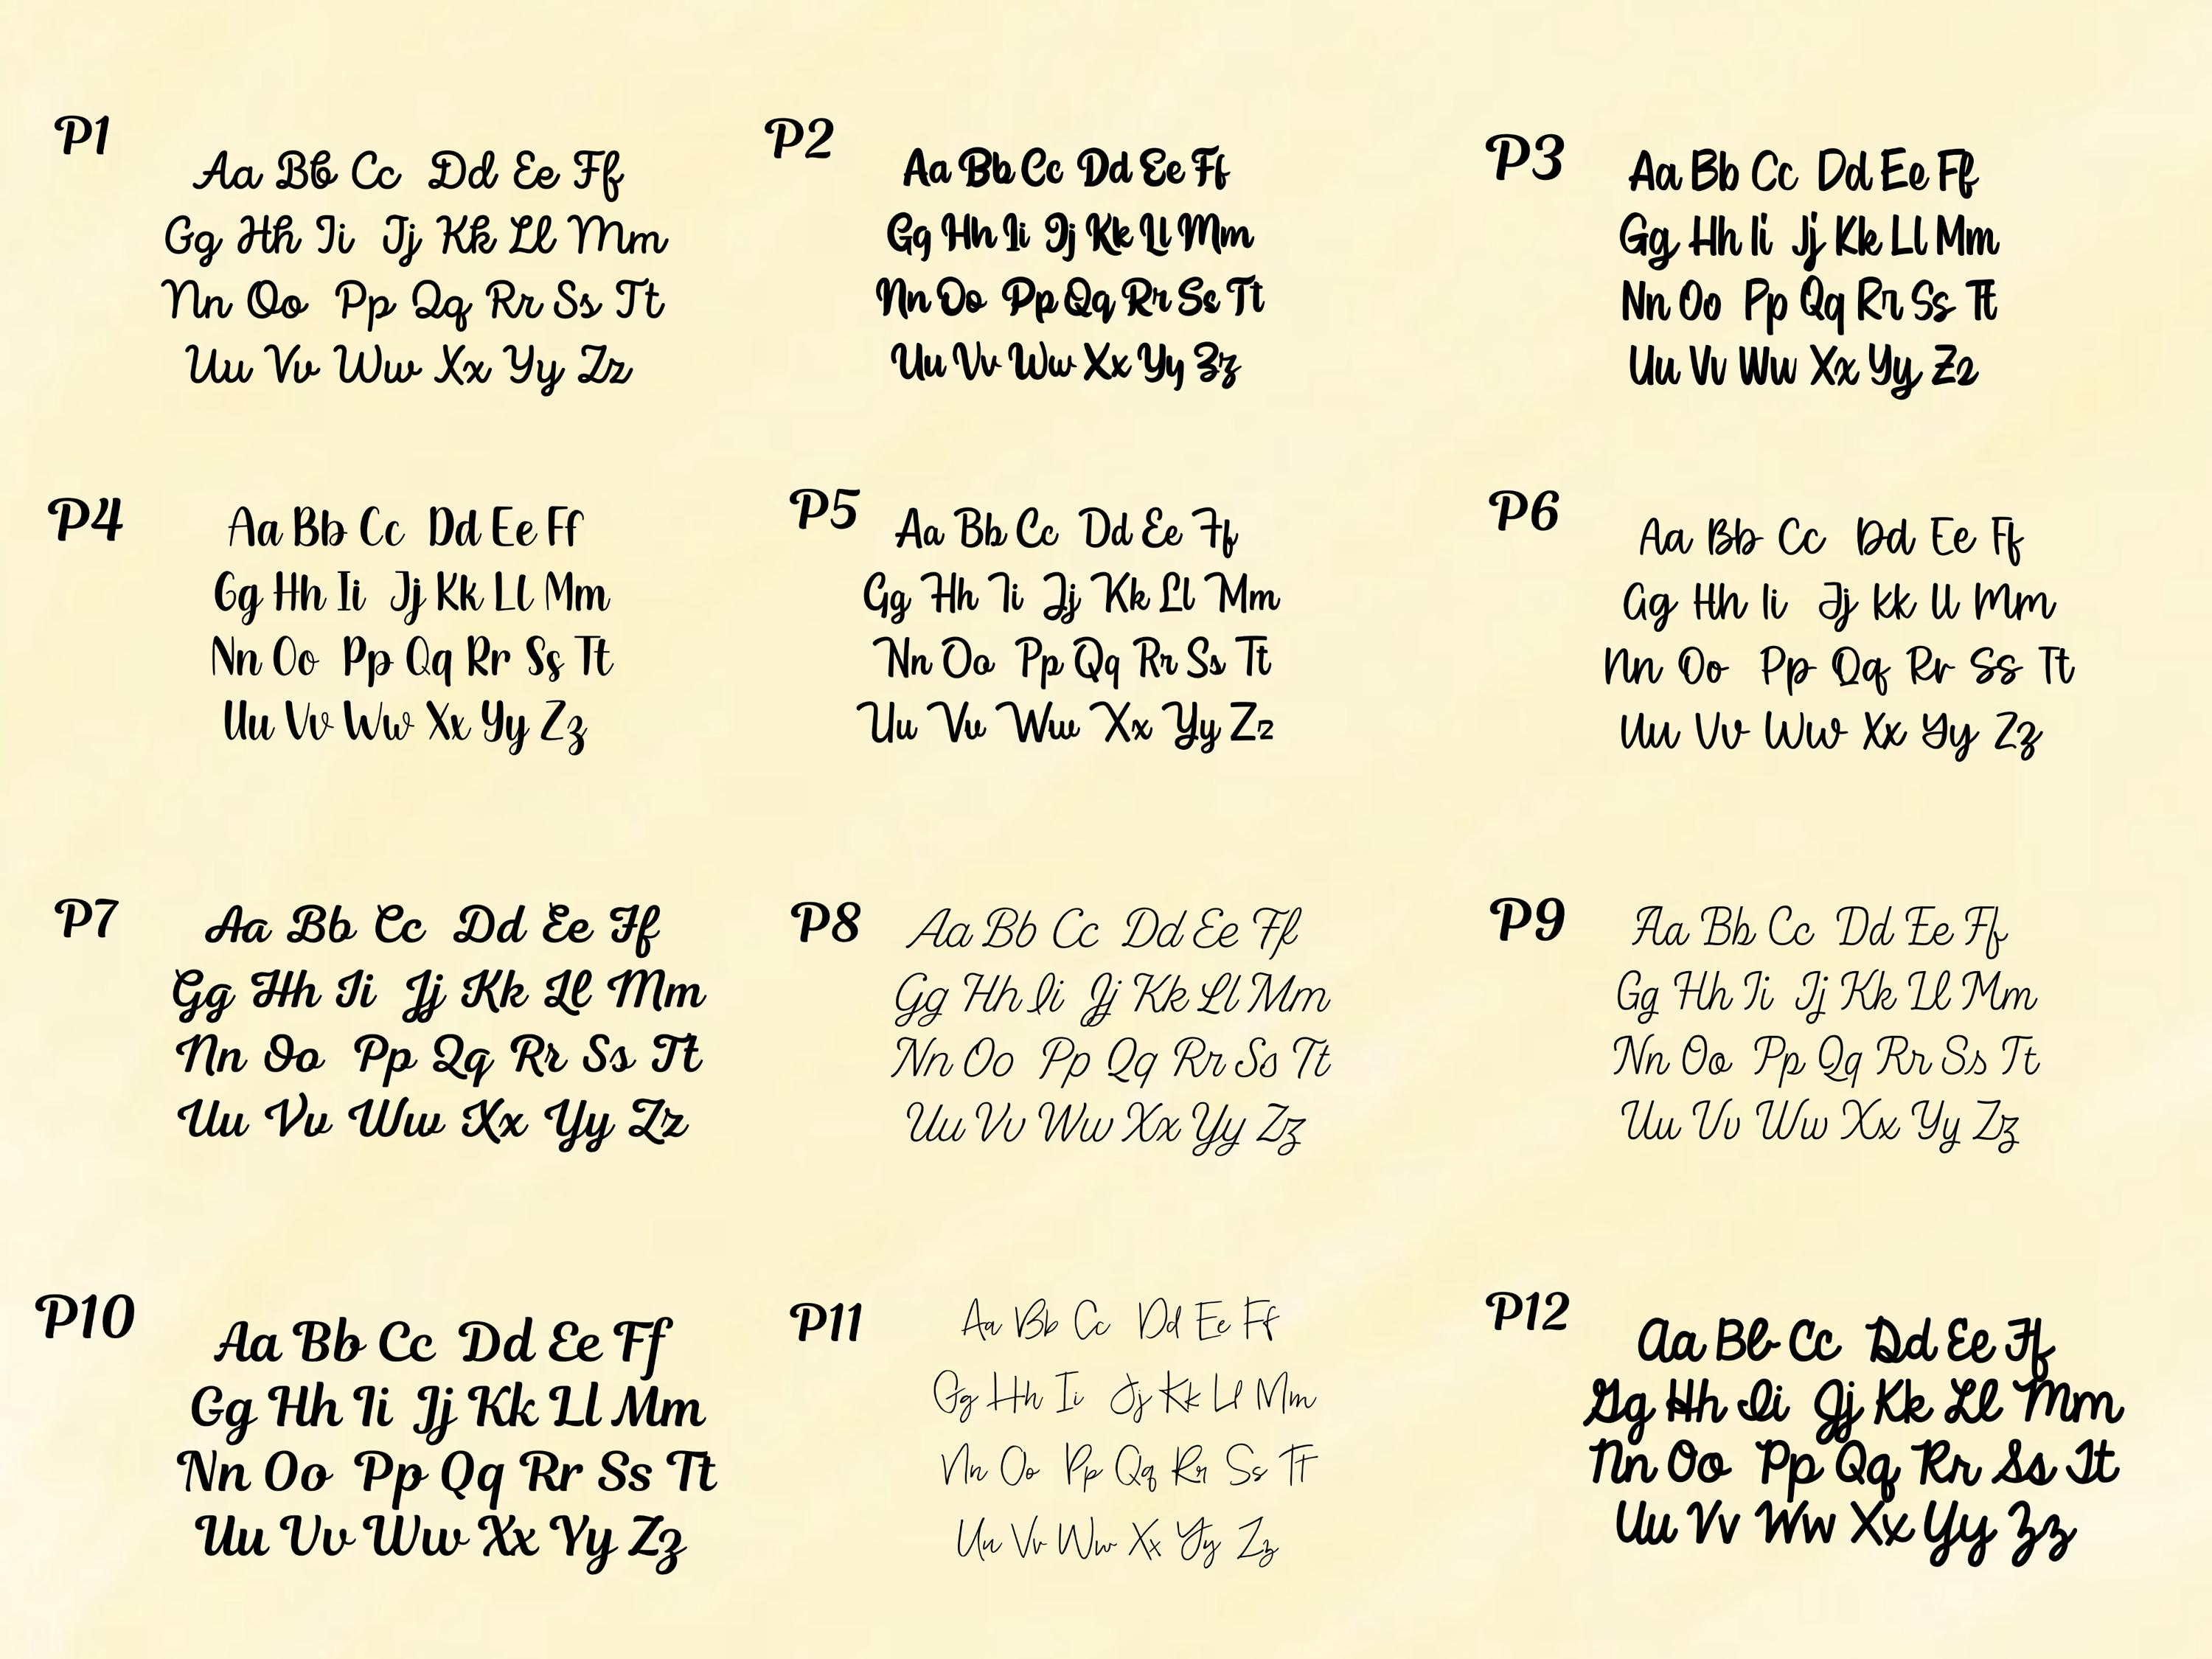 P1
Aa Bb Cc Dd Ee Ff
Gg Hh Ii Jj Kk Ll Mm
Nn Oo Pp Qq Rr Ss Tt
Uu Vv Ww Xx Yy Zz
P2
Aa Bb Cc Dd Ee Ff
Gg Hh Ii Jj Kk Ll Mm
Nn Oo Pp Qq Rr Ss Tt
Uu Vv Ww Xx Yy Zz
P3
Aa Bb Cc Dd Ee Ff
Gg Hh Ii Jj Kk Ll Mm
Nn Oo Pp Qq Rr Ss Tt
Uu Vv Ww Xx Yy Zz
P4
Aa Bb Cc Dd Ee Ff
Gg Hh Ii Jj Kk Ll Mm
Nn Oo Pp Qq Rr Ss Tt
Uu Vv Ww Xx Yy Zz
P5
Aa Bb Cc Dd Ee Ff
Gg Hh Ii Jj Kk Ll Mm
Nn Oo Pp Qq Rr Ss Tt
Uu Vv Ww Xx Yy Zz
P6
Aa Bb Cc Dd Ee Ff
Gg Hh Ii Jj Kk Ll Mm
Nn Oo Pp Qq Rr Ss Tt
Uu Vv Ww Xx Yy Zz
P7
Aa Bb Cc Dd Ee Ff
Gg Hh Ii Jj Kk Ll Mm
Nn Oo Pp Qq Rr Ss Tt
Uu Vv Ww Xx Yy Zz
P8
Aa Bb Cc Dd Ee Ff
Gg Hh Ii Jj Kk Ll Mm
Nn Oo Pp Qq Rr Ss Tt
Uu Vv Ww Xx Yy Zz
P9
Aa Bb Cc Dd Ee Ff
Gg Hh Ii Jj Kk Ll Mm
Nn Oo Pp Qq Rr Ss Tt
Uu Vv Ww Xx Yy Zz
P10
Aa Bb Cc Dd Ee Ff
Gg Hh Ii Jj Kk Ll Mm
Nn Oo Pp Qq Rr Ss Tt
Uu Vv Ww Xx Yy Zz
P11
Aa Bb Cc Dd Ee Ff
Gg Hh Ii Jj Kk Ll Mm
Nn Oo Pp Qq Rr Ss Tt
Uu Vv Ww Xx Yy Zz
P12
Aa Bb Cc Dd Ee Ff
Gg Hh Ii Jj Kk Ll Mm
Nn Oo Pp Qq Rr Ss Tt
Uu Vv Ww Xx Yy Zz